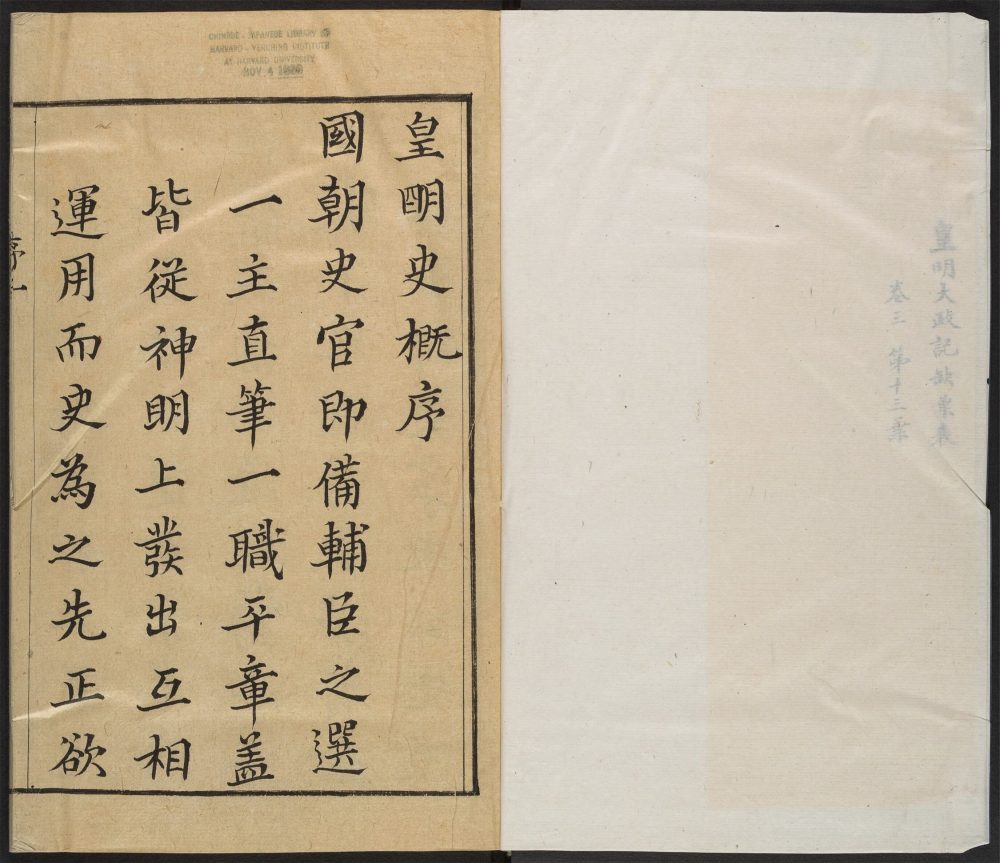 皇明大政記缺葉表
卷三 第十三葉
CHINESE - JAPANESE LIBRARY OF
HARVARD - YENCHING INSTITUTE
AT HARVARD UNIVERSITY
NOV 4
皇明史概序
國朝史官即備輔臣之選
一主直筆一職平章蓋
皆從神明上發出互相
運用而史為之先正欲
序